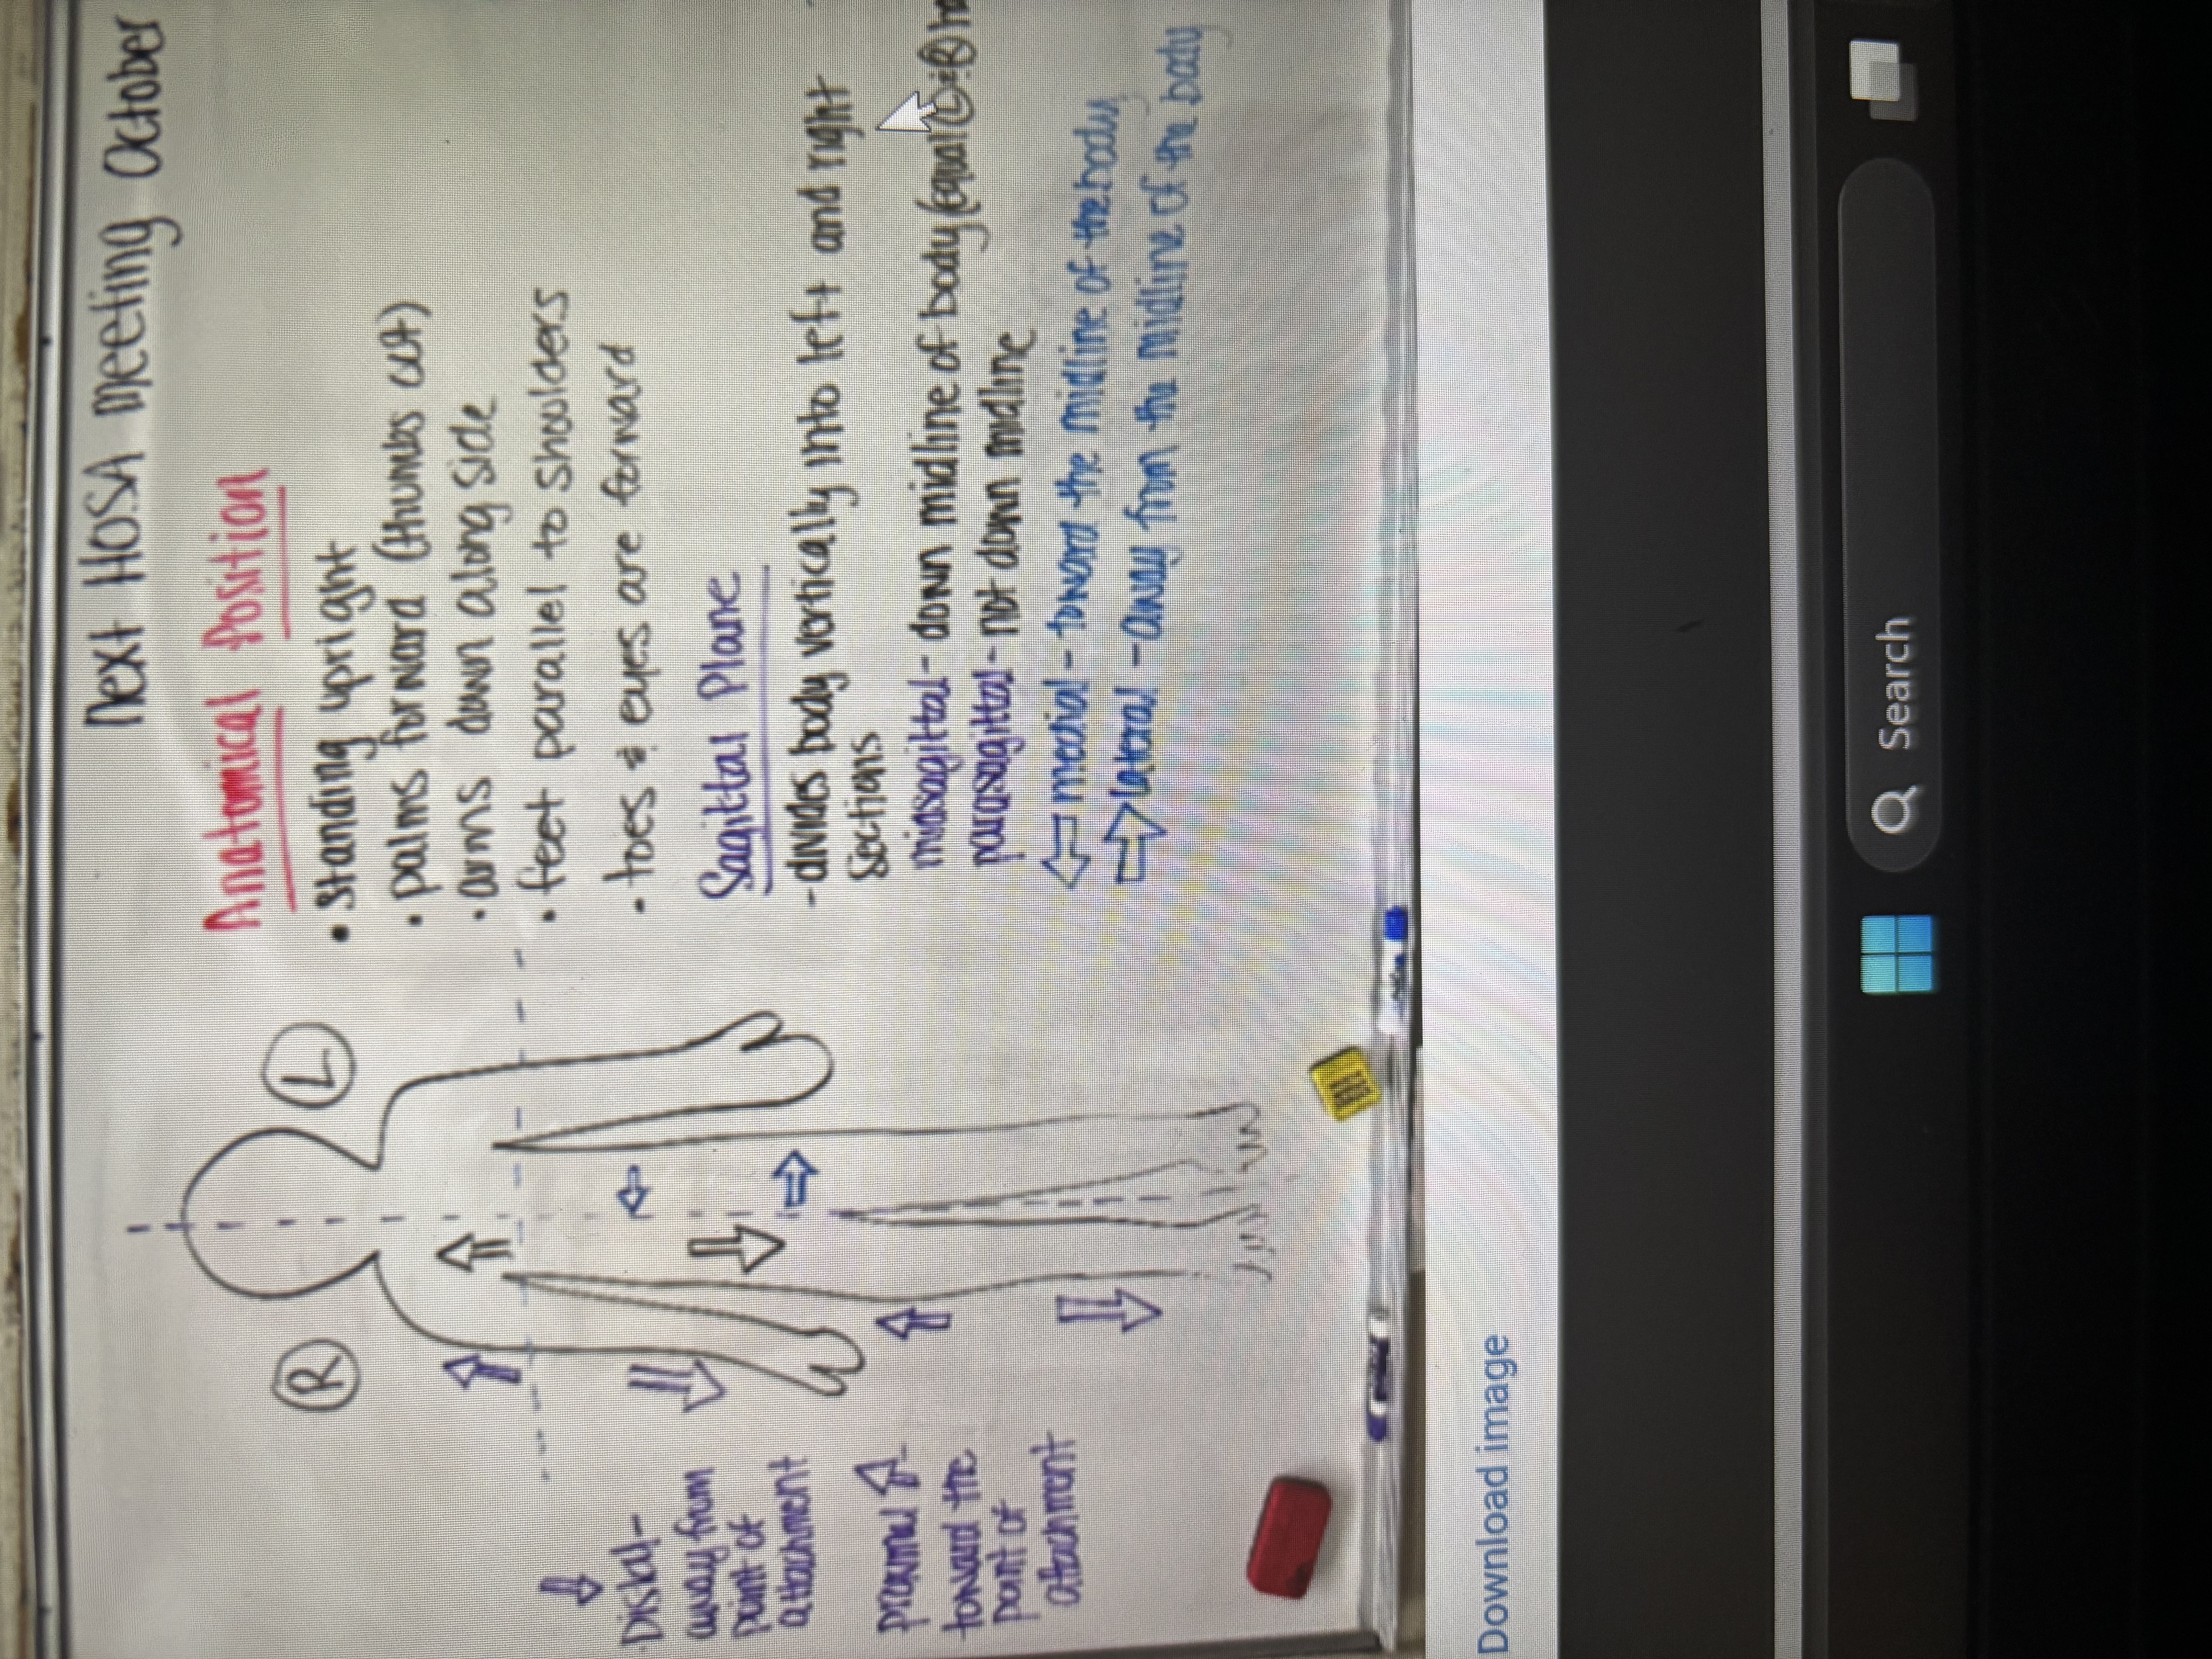 Next HOSA meeting October
Anatomical Position
• standing upright
• palms forward (thumbs out)
• arms down along side
• feet parallel to shoulders
• toes & eyes are forward
Sagittal Plane
- divides body vertically into left and right
sections
midsagittal - down midline of body (equal L & R
parasagittal - not down midline
medial - toward the midline of the body
lateral - away from the midline of the body
R
L
Distal -
away from
point of
attachment
proximal
toward the
point of
attachment
Download image
Search